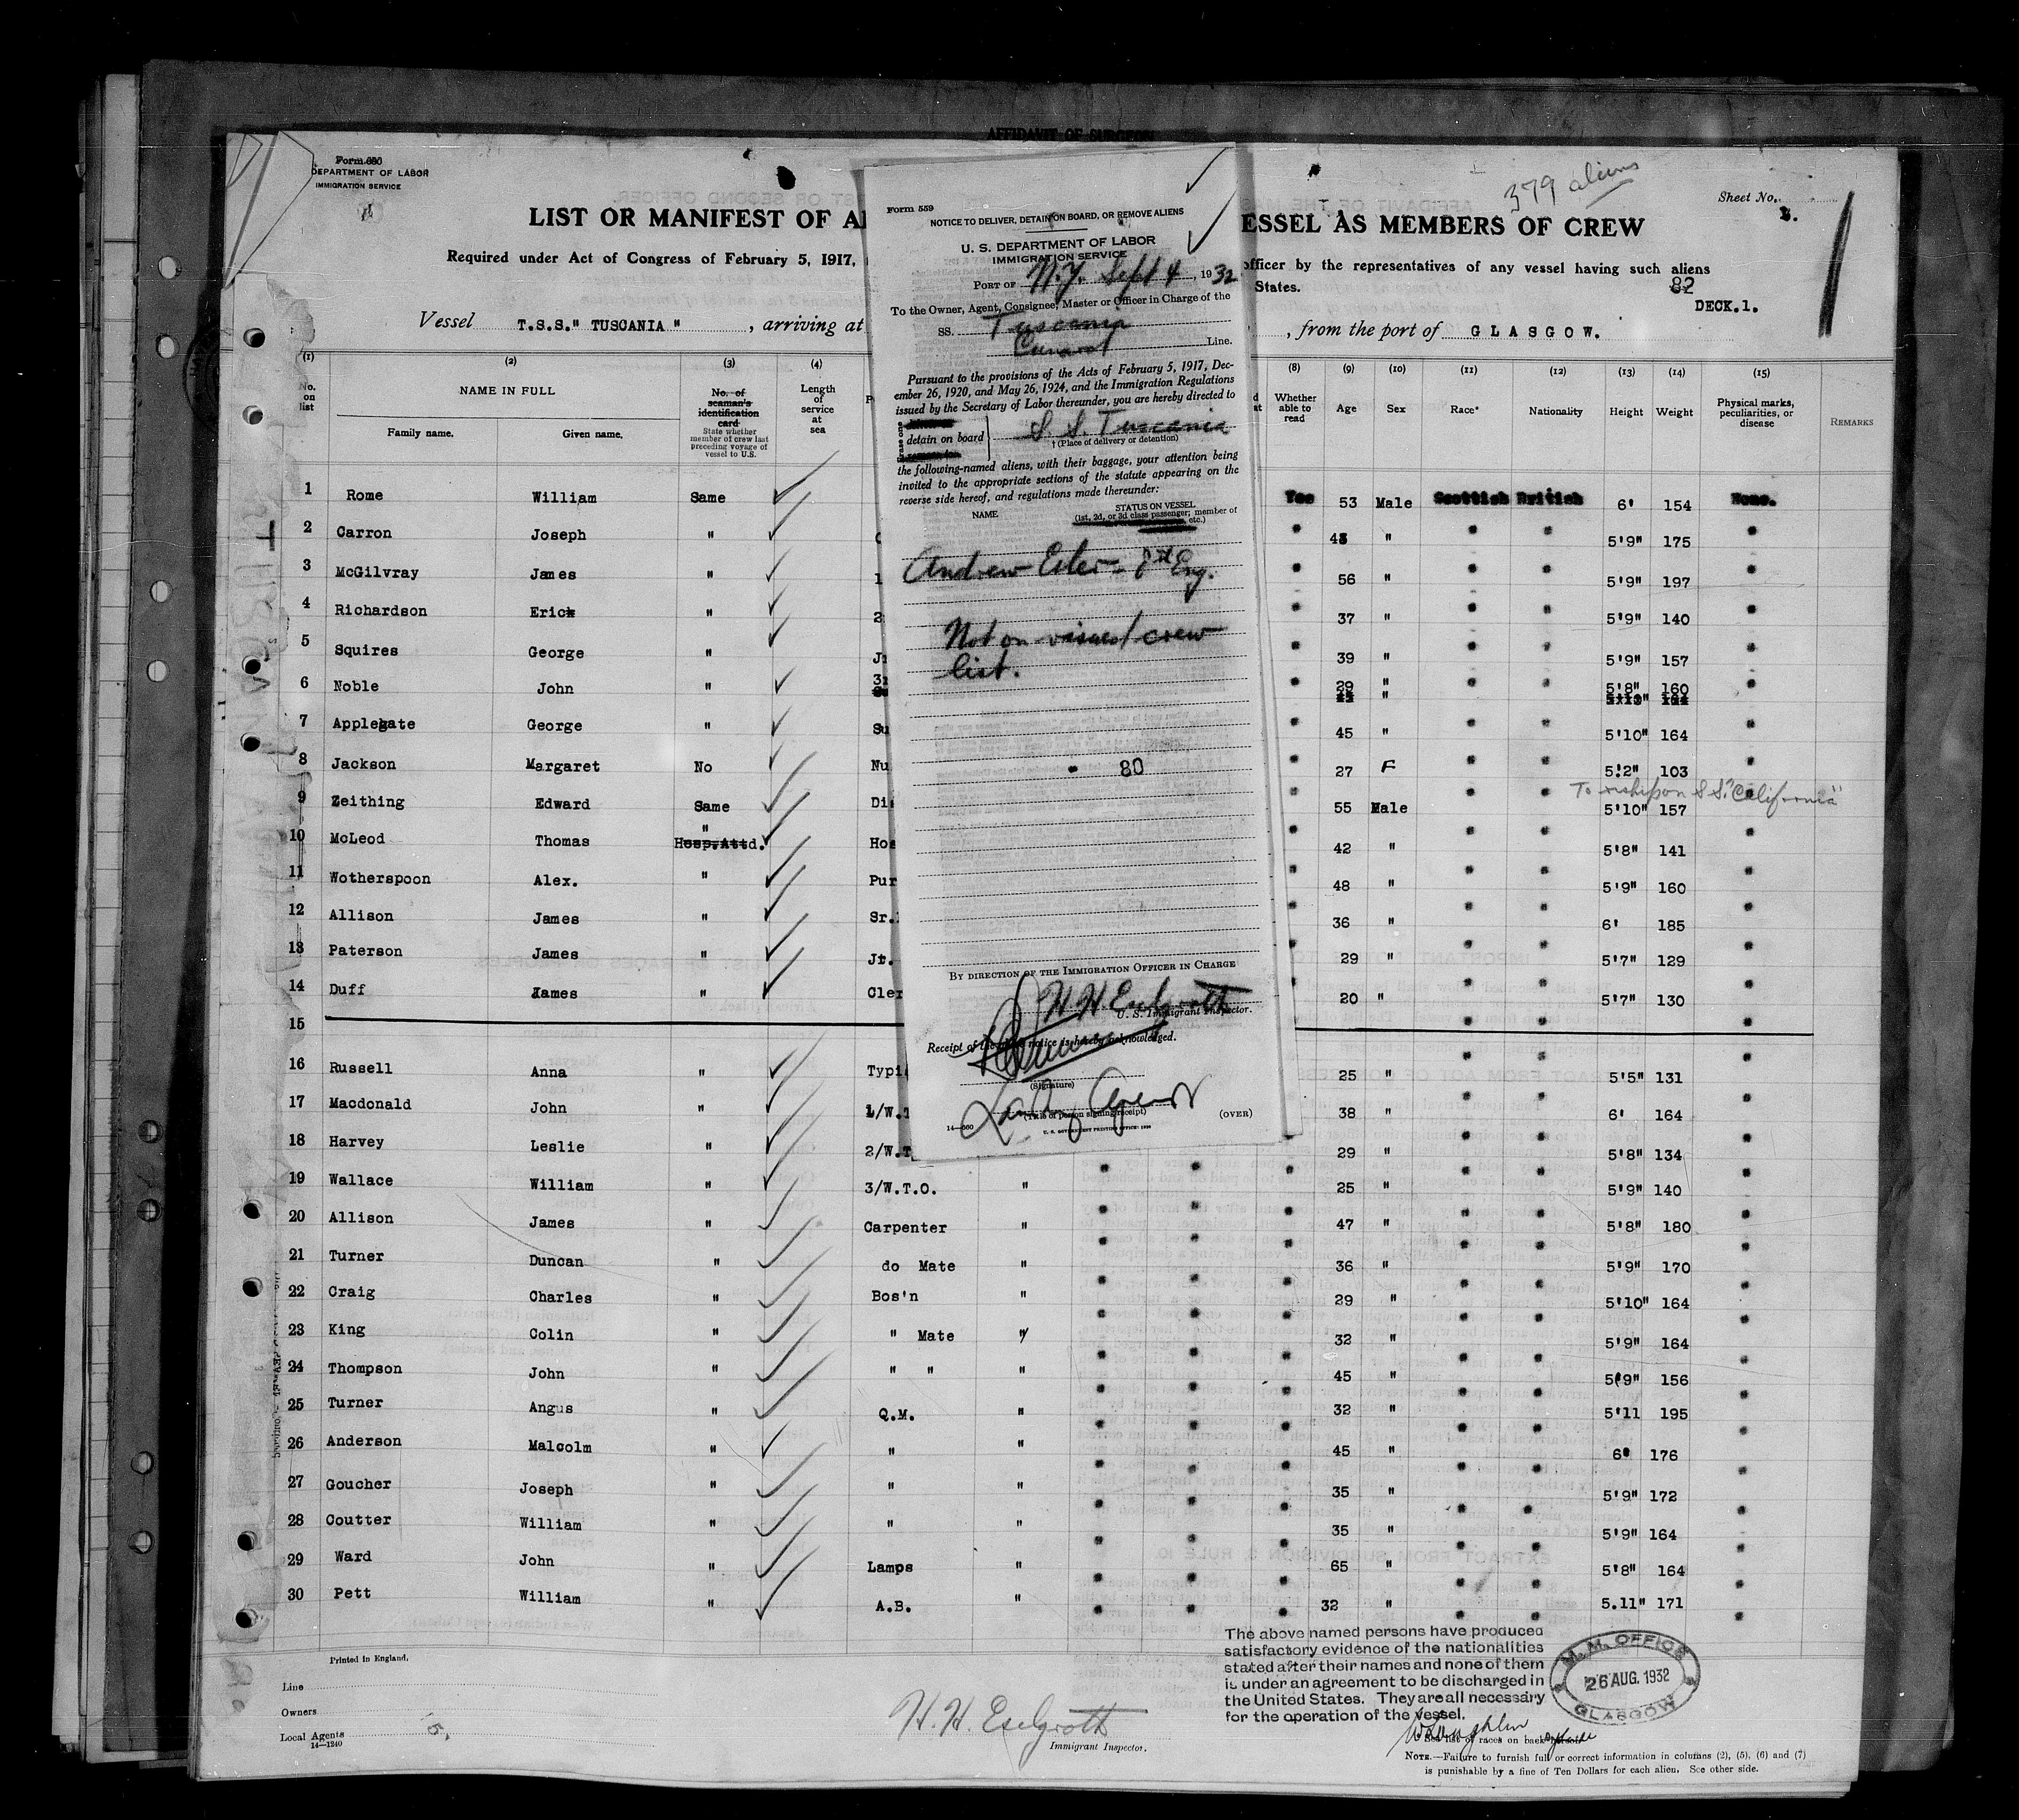 AFFIDAVIT OF SURGEON
Form 680
DEPARTMENT OF LABOR
IMMIGRATION SERVICE
379 aliens
Sheet No. 1.
LIST OR MANIFEST OF AL
ESSEL AS MEMBERS OF CREW
Required under Act of Congress of February 5, 1917,
officer by the representatives of any vessel having such aliens
States.
82
DECK.1.
Vessel T.S.S." TUSCANIA ", arriving at
, from the port of GLASGOW.
Form 559
NOTICE TO DELIVER, DETAIN ON BOARD, OR REMOVE ALIENS
U. S. DEPARTMENT OF LABOR
IMMIGRATION SERVICE
PORT OF N.Y. Sept 4, 1932
To the Owner, Agent, Consignee, Master or Officer in Charge of the
SS. Tuscania
Cunard Line.
Pursuant to the provisions of the Acts of February 5, 1917, Dec-
ember 26, 1920, and May 26, 1924, and the Immigration Regulations
issued by the Secretary of Labor thereunder, you are hereby directed to
detain on board S. S. Tuscania
† (Place of delivery or detention)
the following-named aliens, with their baggage, your attention being
invited to the appropriate sections of the statute appearing on the
reverse side hereof, and regulations made thereunder:
NAME STATUS ON VESSEL
(1st, 2d, or 3d class passenger; member of
etc.)
Andrew Eng.
Not on visaed crew
list.
80
BY DIRECTION OF THE IMMIGRATION OFFICER IN CHARGE
H. H. Eselgroth
U. S. Immigrant Inspector.
Receipt of the notice is hereby acknowledged.
(Signature)
Agent
(Title of person signing receipt)
(OVER)
14—660
U. S. GOVERNMENT PRINTING OFFICE:
(1) (2) (3) (4) (8) (9) (10) (11) (12) (13) (14) (15)
No. on list
NAME IN FULL
Family name. Given name.
No. of seaman's identification card
State whether member of crew last preceding voyage of vessel to U.S.
Length of service at sea
Whether able to read
Age Sex Race* Nationality Height Weight
Physical marks, peculiarities, or disease
REMARKS
1 Rome William Same Yes 53 Male Scottish British 6' 154 None.
2 Carron Joseph " " " " " 5'9" 175 "
3 McGilvray James " 1 " 56 " " " 5'9" 197 "
4 Richardson Erick " 2 " 37 " " " 5'9" 140 "
5 Squires George " " 39 " " " 5'9" 157 "
6 Noble John " " 29 " " " 5'8" 160 "
7 Applegate George " Su " 45 " " " 5'10" 164 "
8 Jackson Margaret No Nu " 27 F " " 5'2" 103 "
To reship on S.S. "California"
9 Zeithing Edward Same Di " 55 Male " " 5'10" 157
10 McLeod Thomas " Hosp.Attd. Hos " 42 " " " 5'8" 141 "
11 Wotherspoon Alex. " Pur " 48 " " " 5'9" 160 "
12 Allison James " Sr. " 36 " " " 6' 185 "
13 Paterson James " Jr. " 29 " " " 5'7" 129 "
14 Duff James " Cler " 20 " " " 5'7" 130 "
15
16 Russell Anna " Typi " 25 " " " 5'5" 131 "
17 Macdonald John " 1/W.T " 38 " " " 6' 164 "
18 Harvey Leslie " 2/W.T " 29 " " " 5'8" 134 "
19 Wallace William " 3/W.T.O. " " " " 25 " " " 5'9" 140 "
20 Allison James " Carpenter " " " " 47 " " " 5'8" 180 "
21 Turner Duncan " do Mate " " " " 36 " " " 5'9" 170 "
22 Craig Charles " Bos'n " " " " 29 " " " 5'10" 164 "
23 King Colin " " Mate " " " " 32 " " " 5'9" 164 "
24 Thompson John " " " " " " " 45 " " " 5'9" 156 "
25 Turner Angus " Q.M. " " " " 32 " " " 5'11 195 "
26 Anderson Malcolm " " " " " " 45 " " " 6' 176 "
27 Goucher Joseph " " " " " " 35 " " " 5'9" 172 "
28 Coutter William " " " " " " 35 " " " 5'9" 164 "
29 Ward John " Lamps " " " " 65 " " " 5'8" 164 "
30 Pett William " A.B. " " " " 32 " " " 5.11" 171 "
Printed in England.
Line
Owners
Local Agents
14—1240
H. H. Eselgroth
Immigrant Inspector.
The above named persons have produced
satisfactory evidence of the nationalities
stated after their names and none of them
is under an agreement to be discharged in
the United States. They are all necessary
for the operation of the vessel.
M.M. OFFICE
26 AUG. 1932
GLASGOW
See list of races on back
NOTE.—Failure to furnish full or correct information in columns (2), (5), (6) and (7)
is punishable by a fine of Ten Dollars for each alien. See other side.